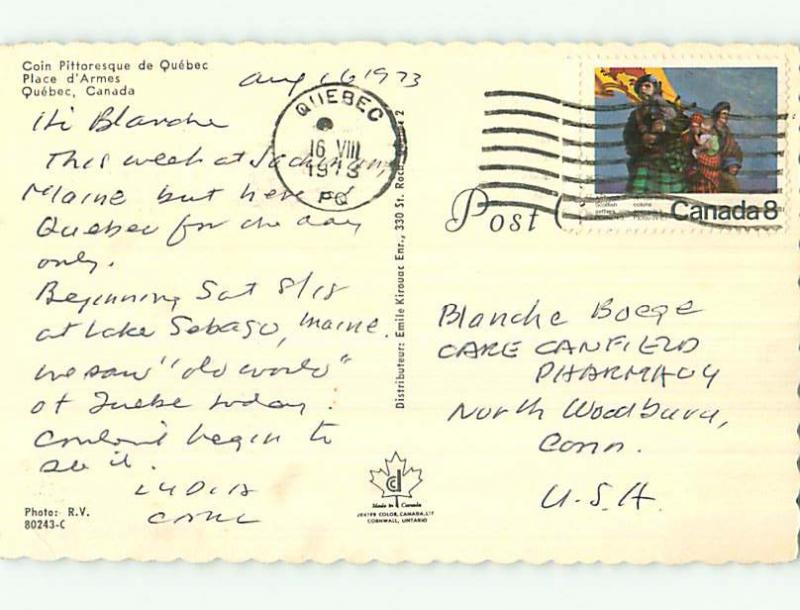 Coin Pittoresque de Québec
Place d'Armes
Québec, Canada
Aug 16 1973
Hi Blanche
This week at Jackman,
Maine but here
Quebec for the day
only.
Beginning Sat 8/18
at Lake Sebago, Maine.
We saw "old world"
of Quebec today.
Couldn't begin to
see it.
LYDIA
CARL
Photo: R.V.
80243-C
Distributeur: Emile Kirouac Enr., 330 St. Roch, 2
QUEBEC
16 VIII
1973
PQ
Post
Canada 8
Blanche Boege
CARE CANFIELD
PHARMACY
North Woodbury,
Conn.
U.S.A.
Made in Canada
CORNWALL, ONTARIO